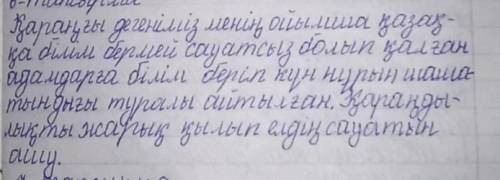 Қараңғы дегеніміз менің ойымша қазақ-
қа білім бермей сауатсыз болып қалған
адамдарға білім беріп күн нұрын шаша-
тындығы туралы айтылған. Қараңды-
лықты жарық қылып елдің сауатын
ашу.